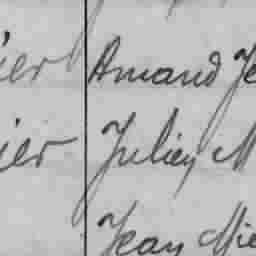 ier Amand Je
ier Julien M
Jean Mie